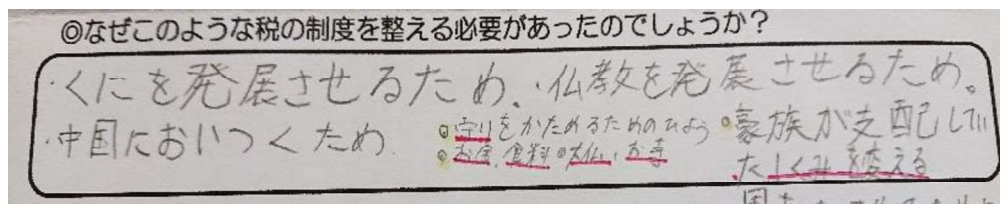 ◎なぜこのような税の制度を整える必要があったのでしょうか?
・くにを発展させるため。・仏教を発展させるため。
・中国においつくため
◎守りをかためるためのひよう
◎お金、食料◎大仏、お寺
◎豪族が支配してい
たしくみを変える